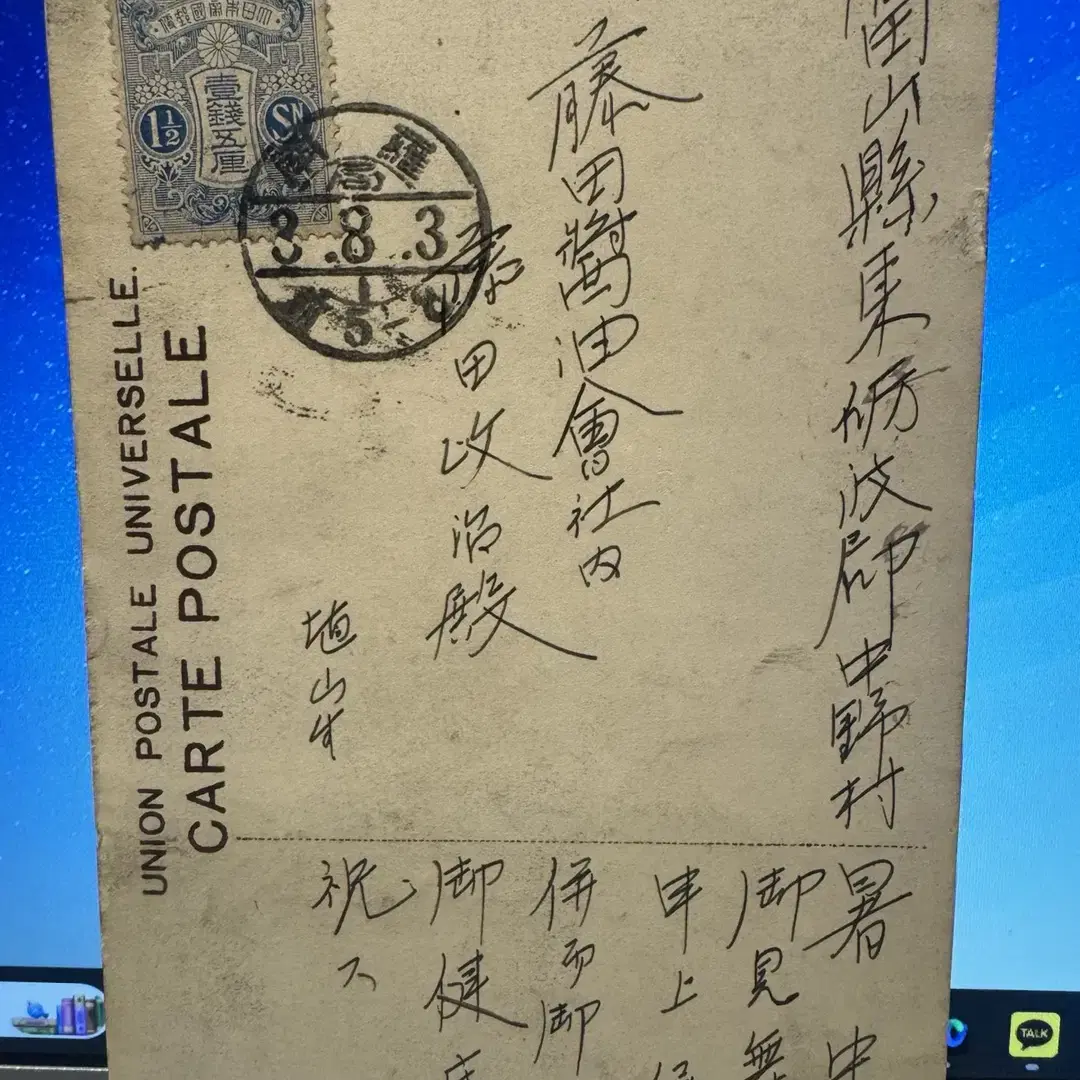 大日本帝國郵便
壹錢五厘
1½
SN
羅高
3.8.3
UNION POSTALE UNIVERSELLE.
CARTE POSTALE
富山縣東礪波郡中野村
藤田醬油會社内
藤田政治殿
埴山生
暑中
御見舞
申上
併而御
御健
祝ス
TALK